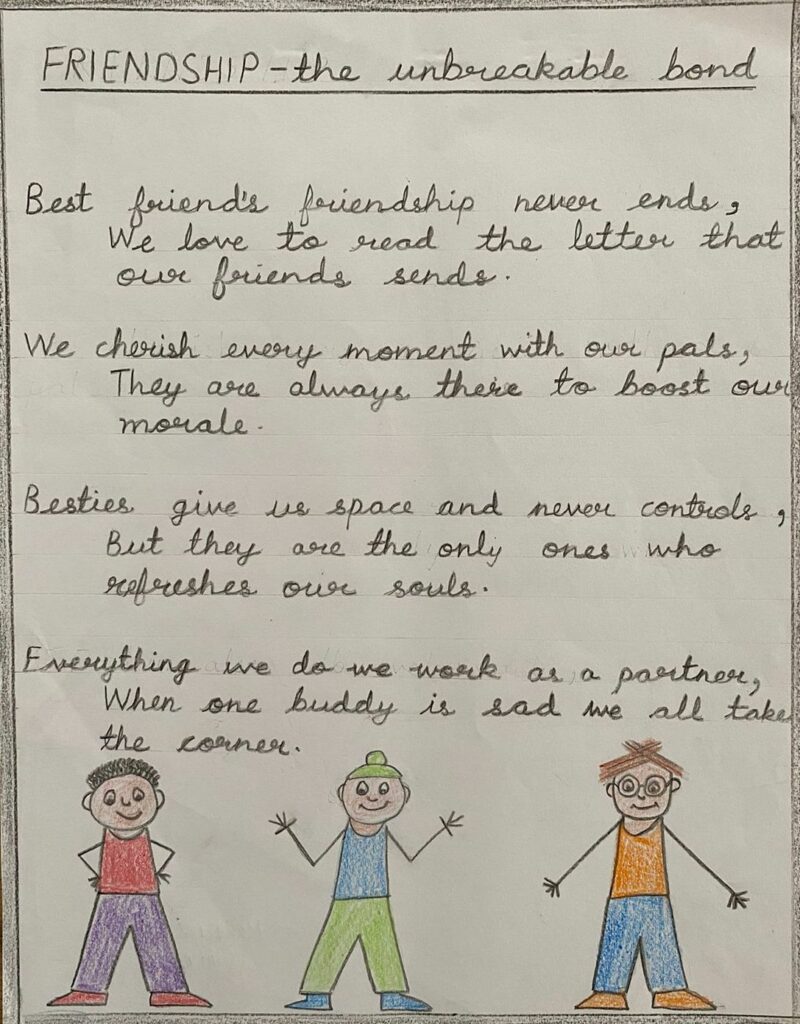 FRIENDSHIP - the unbreakable bond
Best friend's friendship never ends,
We love to read the letter that
our friends sends.
We cherish every moment with our pals,
They are always there to boost our
morale.
Besties give us space and never controls,
But they are the only ones who
refreshes our souls.
Everything we do we work as a partner,
When one buddy is sad we all take
the corner.